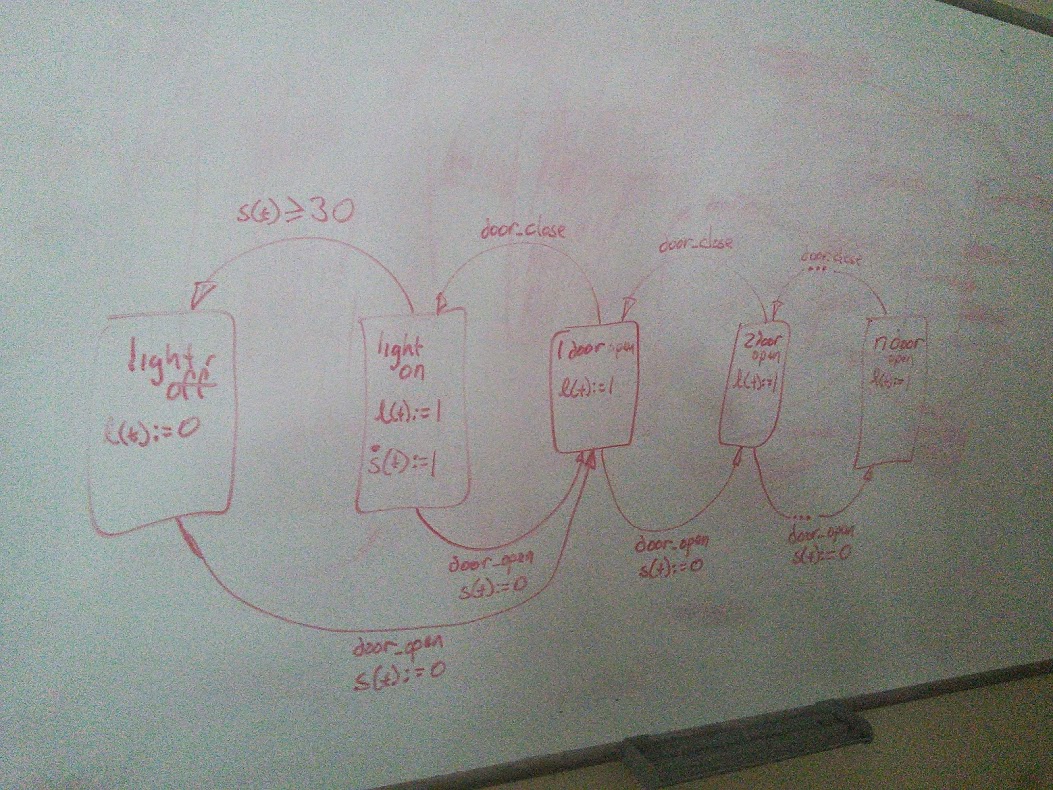 s(t)≥30
door_close
door_close
door_close
...
light
off
l(t):=0
light
on
l(t):=1
ṡ(t):=1
1 door open
l(t):=1
2 door
open
l(t):=1
n door
open
l(t):=1
door_open
s(t):=0
door_open
s(t):=0
door_open
s(t):=0
...
door_open
s(t):=0